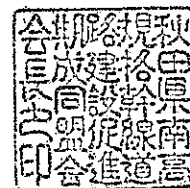 秋田県南高
規格幹線道
路建設促進
期成同盟会
会長之印